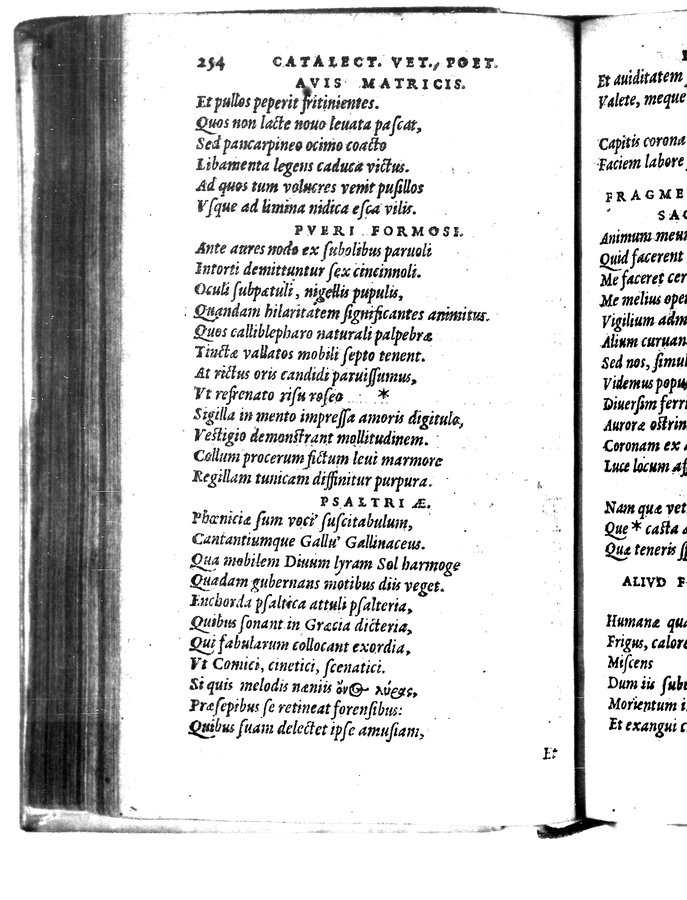 254 CATALECT. VET. POET.
AVIS MATRICIS.
Et pullos peperit fritinientes.
Quos non lacte nouo leuata pascat,
Sed pancarpineo ocimo coacto
Libamenta legens caduca victus.
Ad quos tum volucres venit pusillos
Vsque ad limina nidica esca vilis.
PVERI FORMOSI.
Ante aures nodo ex subolibus paruoli
Intorti demittuntur sex cincinnoli.
Oculi subpætuli, nigellis pupulis,
Quandam hilaritatem significantes animitus.
Quos calliblepharo naturali palpebræ
Tinctæ vallatos mobili septo tenent.
At rictus oris candidi paruissumus,
Vt refrenato risu roseo *
Sigilla in mento impressa amoris digitulo,
Vestigio demonstrant mollitudinem.
Collum procerum fictum leui marmore
Regillam tunicam diffinitur purpura.
PSALTRIÆ.
Phœniciæ sum voci' suscitabulum,
Cantantiumque Gallu' Gallinaceus.
Qua mobilem Diuum lyram Sol harmoge
Quadam gubernans motibus diis veget.
Enchorda psaltica attuli psalteria,
Quibus sonant in Græcia dicteria,
Qui fabularum collocant exordia,
Vt Comici, cinetici, scenatici.
Si quis melodis næniis ὄνος λύρας,
Præsepibus se retineat forensibus:
Quibus suam delectet ipse amusiam,
Et
Et auiditatem
Valete, meque
Capitis corona
Faciem labore
FRAGME
SAC
Animum meum
Quid facerent
Me faceret cer
Me melius ope
Vigilium adm
Alium curuan
Sed nos, simul
Videmus popu
Diuersim ferri
Auroræ ostrin
Coronam ex a
Luce locum aff
Nam quæ vet
Que * casta a
Quæ teneris ss
ALIVD F
Humanæ qua
Frigus, calore
Miscens
Dum iis sube
Morientum i
Et exangui c